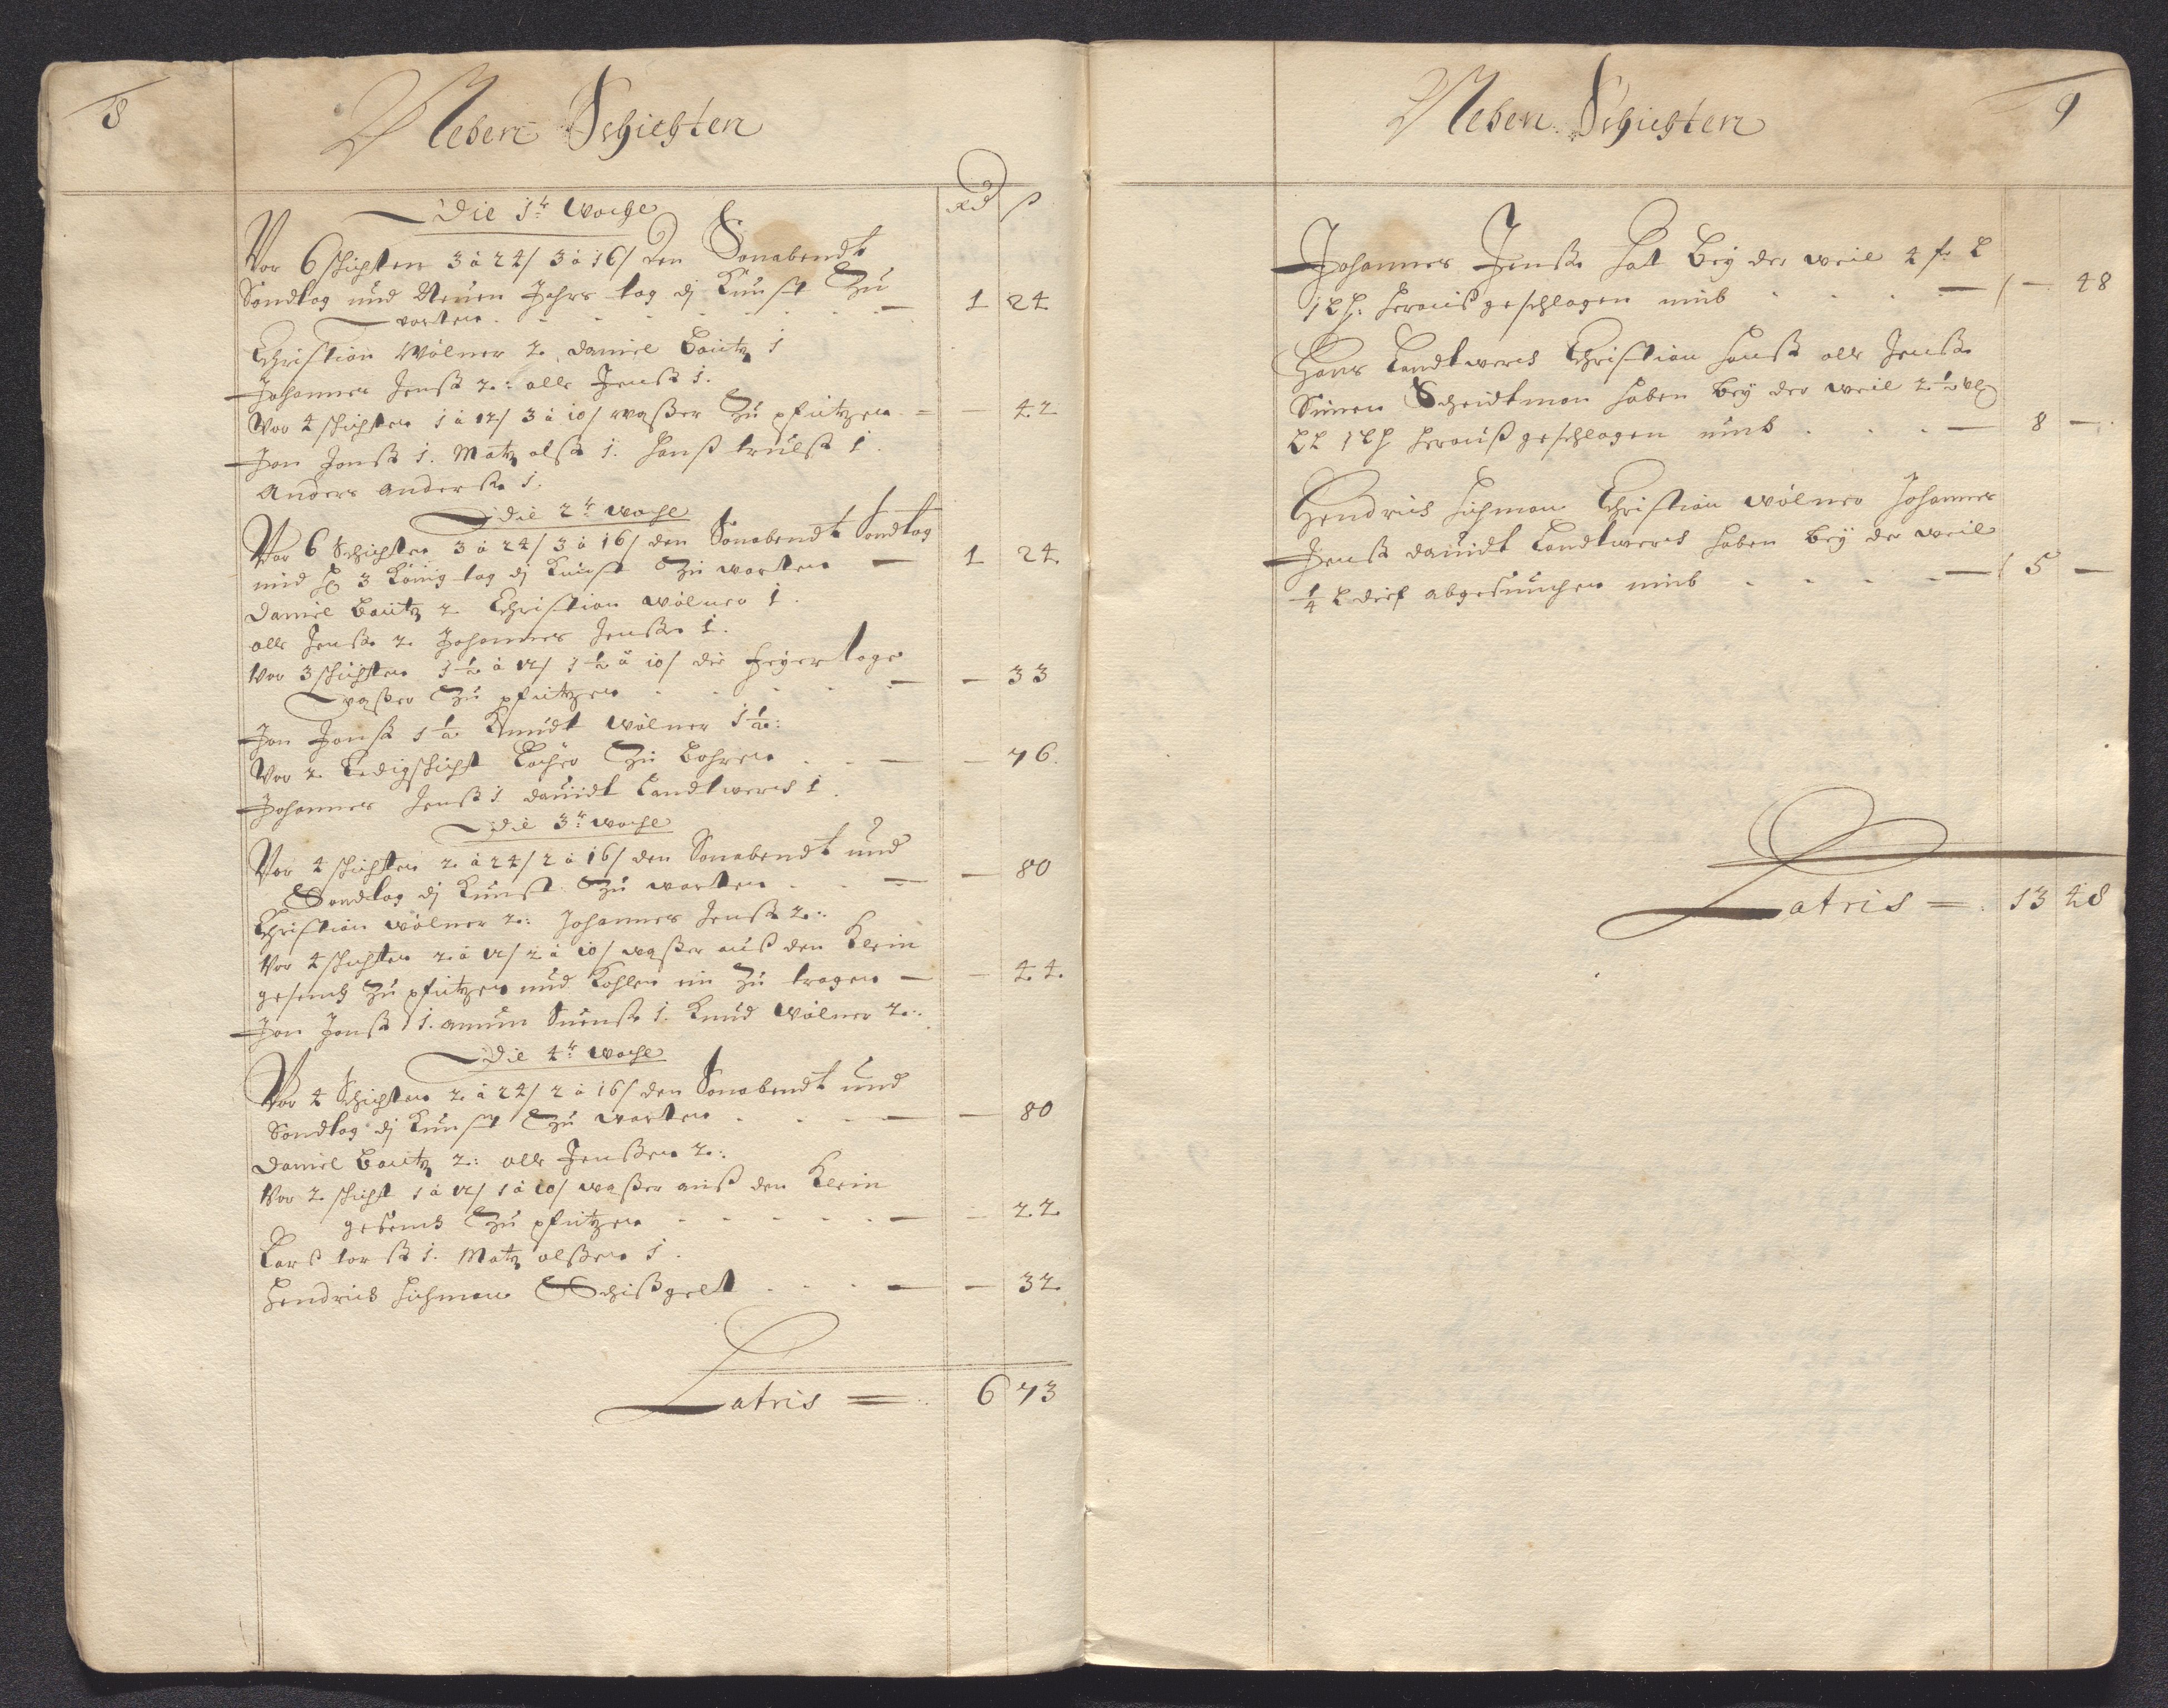 8
Neben Schichten
Rd ß
Die 1te Woche
Vor 6 schichten 3 à 24/ 3 à 16/ den Sonabendt
Sondtag und Neuen Jahrs tag dj Kunst Zu
warten . . . . . . . — 1 24
Christian Wölner 2. Daniel Bautz 1
Johannes Jenß 2: olle Jenß 1.
Vor 4 schichten 1 à 12/ 3 à 10/ waßer Zu pfützen = — 42
Jon Jonß 1. Matz olß 1. Hanß trulß 1.
Anders Anderß 1.
Die 2te Woche
Vor 6 Schichten 3 à 24/ 3 à 16/ den Sonabendt Sondtag
und H 3 König tag dj Kunst Zu warten — 1 24
Daniel Bautz 2 Christian Wölner 1.
olle Jenß 2 Johannes Jenß 1.
Vor 3 schichten 1½ à 12/ 1½ à 10/ die Feyertage
waßer Zu pfützen . . . . — — 33
Jon Jonß 1½ Knudt Wölner 1½:
Vor 2 Ledigschicht Löcher Zu bohren . . — — 76.
Johannes Jenß 1 Davidt Landtwerck 1.
Die 3te Woche
Vor 4 schichten 2 à 24/ 2 à 16/ den Sonabendt und
Sondtag dj Kunst Zu warten . . — — 80
Christian Wölner 2: Johannes Jenß 2:
Vor 4 schichten 2 à 12/ 2 à 10/ waßer auß den Klein
gesenck Zu pfützen und Kohlen ein Zu tragen — — 44.
Jon Jonß 1. Amun Suenß 1. Knud Wölner 2:
Die 4te Woche
Vor 4 Schichten 2 à 24/ 2 à 16/ den Sonabendt und
Sondtag dj Kunst Zu warten . . . — — 80
Daniel Bautz 2: olle Jenßen 2:
Vor 2 schicht 1 à 12/ 1 à 10/ waßer auß den Klein
gesenck Zu pfützen . . . . . — — 22
Lars lorß 1. Matz olßen 1.
Hendrich Hichman Schißgelt . . — — 32.
Latris = 6 73
Neben Schichten
9
Johannes Jenß hat bey der weil 4 f. L
1 Lh: herauß geschlagen umb . . . — — 48
Hans Landtwerck Christian Hanß olle Jenß
Simon Scheidtman haben bey der weil 2½
LL 1 Lh herauß geschlagen umb . . . — 8 —
Hendrich Hichman Christian Wölner Johannes
Jenß Davidt Landtwerck haben bey der weil
¼ L dief abgesuncken umb . . . . — 5 —
Latris = 13 48